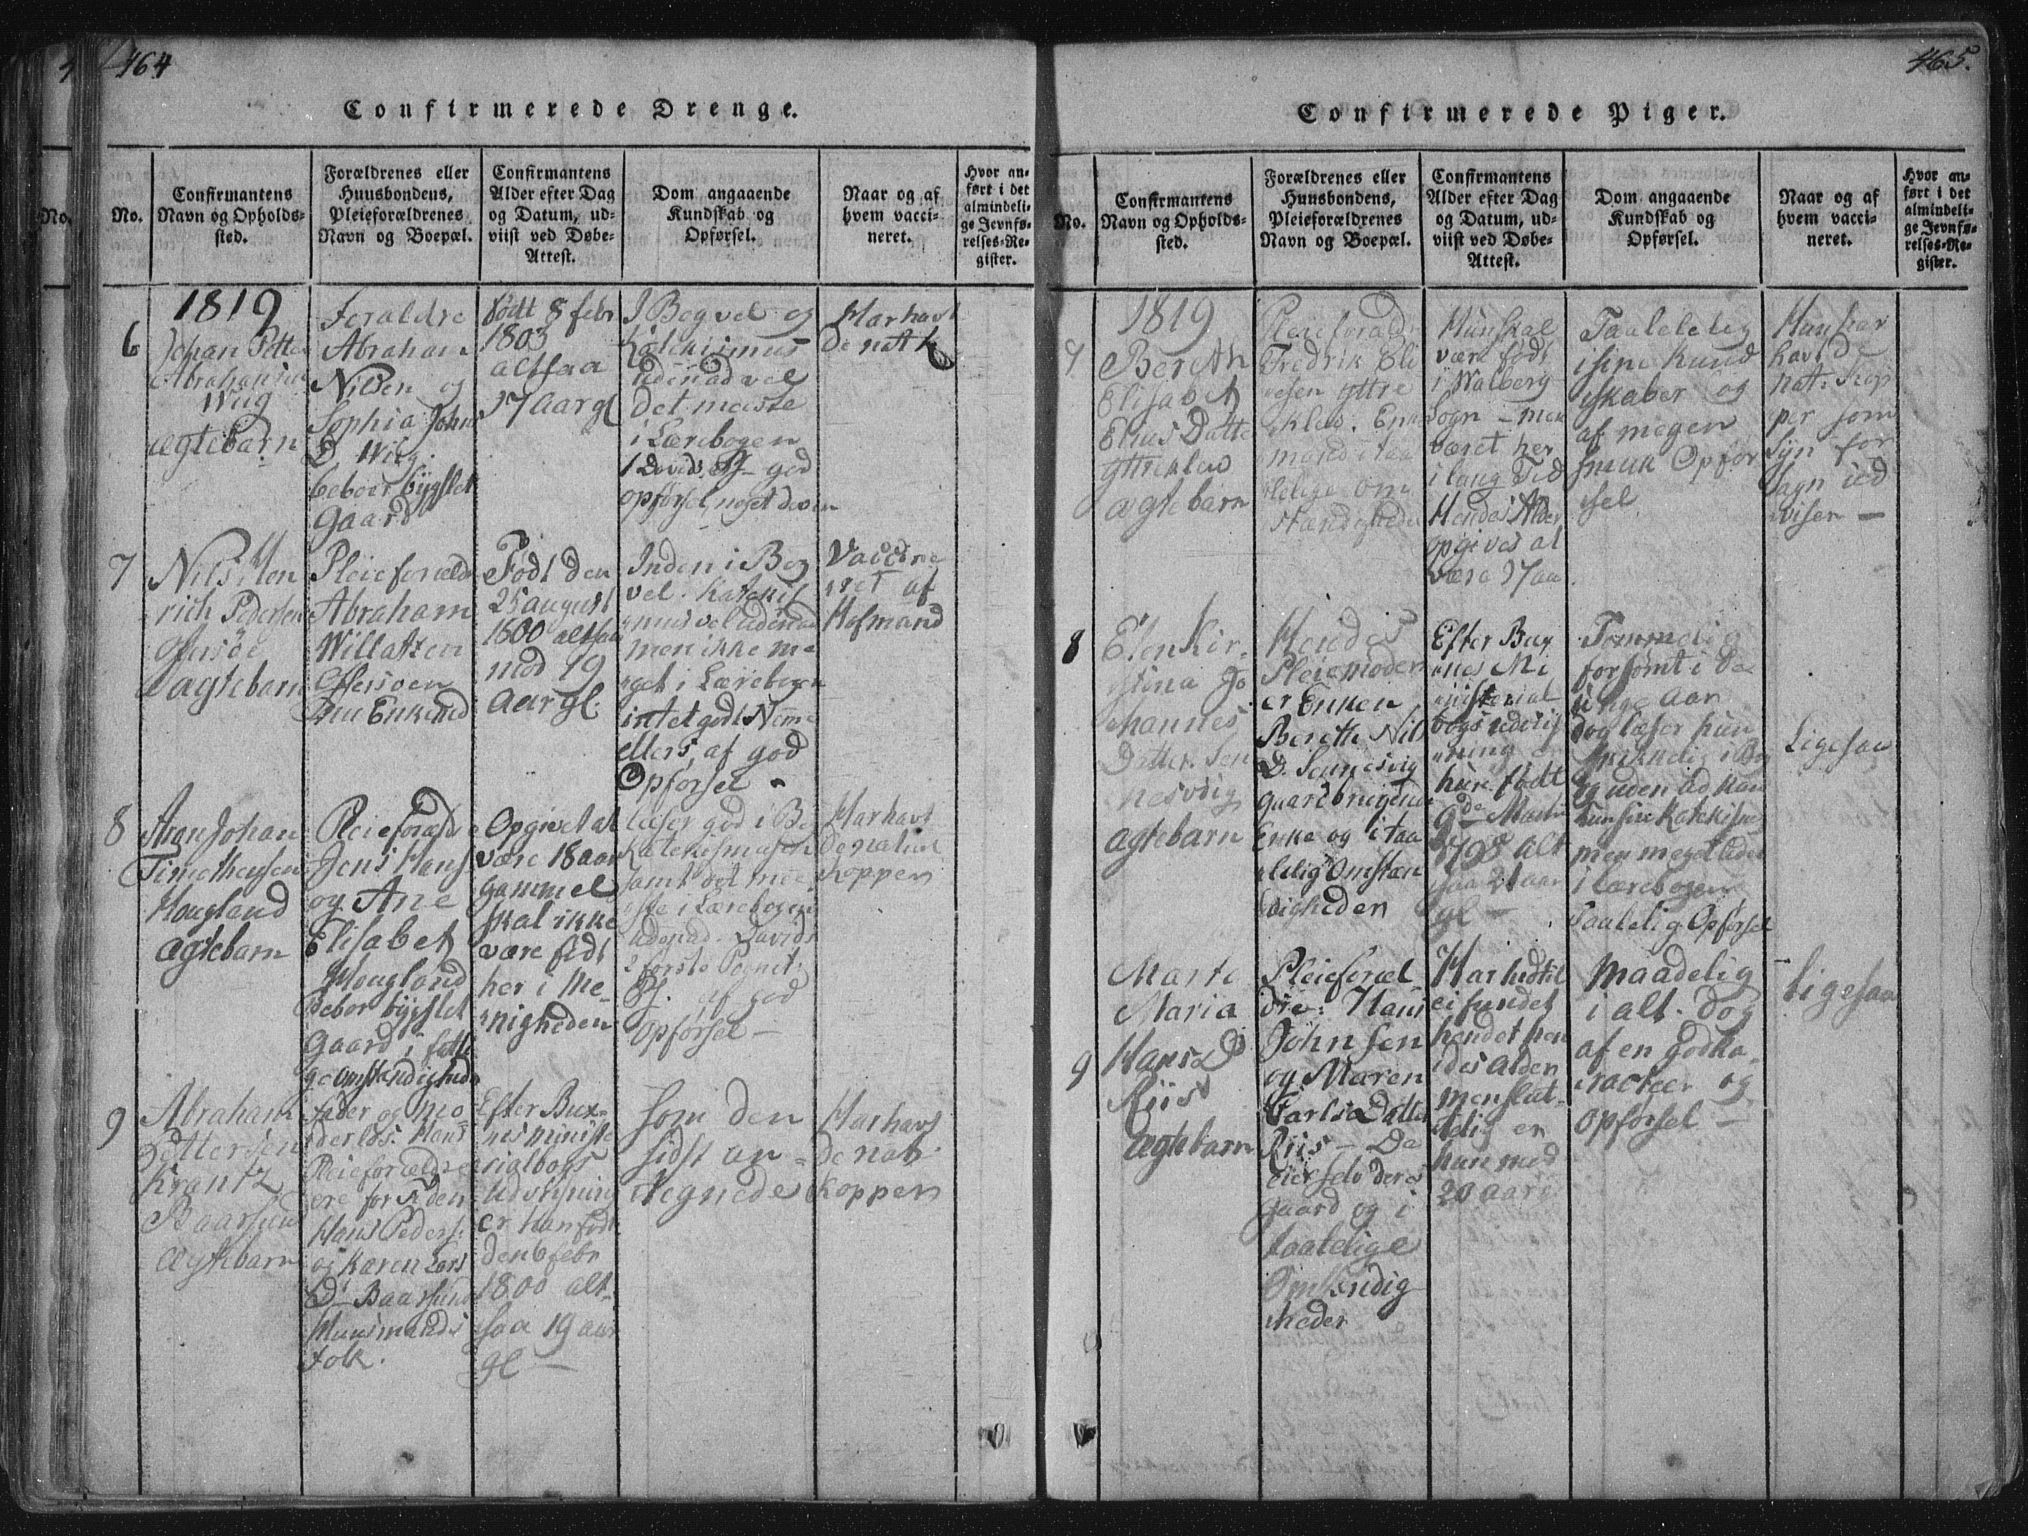 464
Confirmerede Drenge.
No.
Confirmantens
Navn og Opholds-
sted.
Forældrenes eller
Huusbondens,
Pleieforældrenes
Navn og Boepæl.
Confirmantens
Alder efter Dag
og Datum, ud-
viist ved Døbe-
Attest.
Dom angaaende
Kundskab og
Opførsel.
Naar og af
hvem vacci-
neret.
Hvor an-
ført i det
almindeli-
ge Jevnfø-
relses-Re-
gister.
1819
6
Johan Petter
Abrahamsen
Wiig
ægtebarn
Foraldre
Abraham
Nilsen og
Sophia Johns
D Wiig
beboer bÿgslet
Gaard
født 8 febr
1803
altsaa
17 aar gl
I Bog vel og
Katekismus
udenad vel
det meiste
i Lærebogen
1 Davids Ps- god
opførsel
Har havt
de nat K
7
Nils Hen
rich Pedersen
ægtebarn
Pleieforæld
Abraham
Willatzen
Enkemd
Født den
25 august
1800 altsaa
mod 19
aar gl.
Inden i Bog
vel. Katekis
mus vel udenad
men ikke me
get i Lærebogen
intet godt Nemme
ellers af god
Opførsel
Vaccine
ret af
Hofmand
8
Aron Johan
Timotheusen
Hougland
ægtebarn
Pleieforæld
Jens Hans
og Ane
Elisabet
Hougland
Bebor bÿgslet
Gaard i fatti
ge omstændigheder
Opgivet at
være 18 aar
gammel
skal ikke
være født
her i Me-
nigheden
læser god i Bog
Katekismusen
samt det mei
ste i Lærebogen
udenad. Davids
2 første Pognit:
Ps. af god
opførsel-
Har havt
de naturl
Kopper
9
Abraham
Pettersen
Krantz
Baarsund
ægtebarn
Fader og mo
derløs. Hans
Pleieforældre
ere for Tiden
Hans Peders:
og Karen Lars
D- Baarsund
Huusmands
folk.
Efter Bux-
nes Ministe
rialbogs
Udvisning
er Han født
den 6 febr
1800 alt-
saa 19 aar
gl-
Som den
sidst an-
tegnede
Har havt
de nat
Kopper
465.
Confirmerede Piger.
No.
Confirmantens
Navn og Opholds-
sted.
Forældrenes eller
Huusbondens,
Pleieforældrenes
Navn og Boepæl.
Confirmantens
Alder efter Dag
og Datum, ud-
viist ved Døbe-
Attest.
Dom angaaende
Kundskab og
Opførsel.
Naar og af
hvem vacci-
neret.
Hvor an-
ført i det
almindeli-
ge Jevnfø-
relses-Re-
gister.
1819
7
Bereth
Elisabet
Elias Datte
Ytteklev
ægtebarn
Pleieforæld
Fredrik Eli
esen Yttre
klev. Enke
mand i taa
lelige om
stændigheder
Hun skal
være født
i Walberg
Sogn - men
været her
i lang Tid
Hendes Alder
opgives at
være 17 aa
Taalelelig
i sine Kund
skaber og
af megen
smuk Opfør
sel
Hun har
havt de
nat: Kop
per som
Syn for
Sagn ud
viser-
8
Elen Kir-
stina Jo
hannes
Datter. Sen
nesvig
ægtebarn
Hendes
Pleiemoder
er Enken
Berethe Nils
D. Sennesvig
gaardbrugende
Enke og i taa
lelig Omstæn
digheder
Efter Bux
nes Mi
nisterial
bogs udvis
ning er
hun født
9de Martii
1798 alt
saa 21 aar
gl-
Temmelig
forsømt i de
unge aar
dog læser hun
i Bog
og uden ad kan
hun sin Katekismus
men meget lidet
i lærebogen
Taalelig Opførsel
Ligesaa
9
Marte
Maria
Hans D
Riis
ægtebarn
Pleieforæl
dre: Hans
Johnsen
og Maren
Carls Datter
Riis- De
eier selv deres
gaard og i
taalelige
Omstændig
heder
Har hidtil
ei fundet
hendet hen
des alder
men slut-
telig er
hun med
20 aar
Maadelig
i alt. Dog
af en god ka-
racteer og
opførsel-
Ligesaa